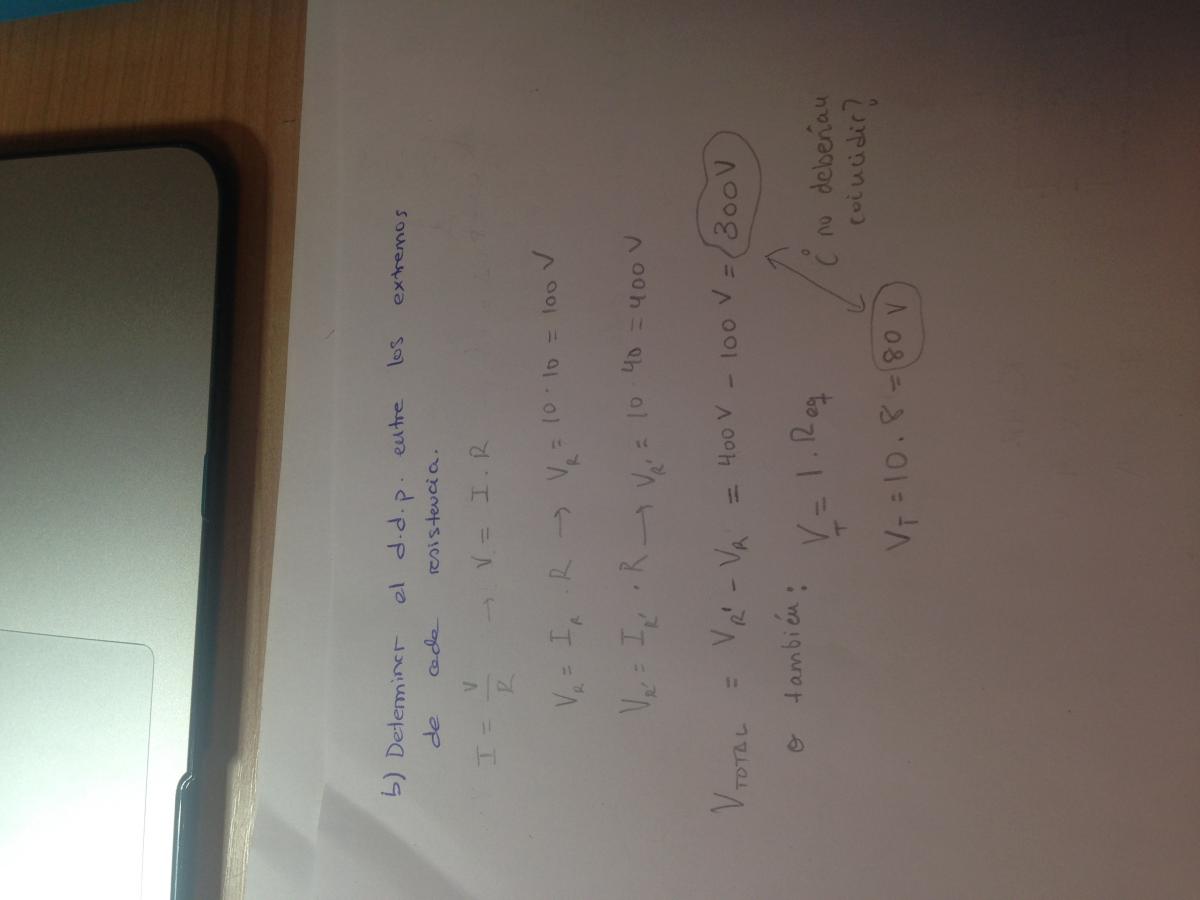 b) Determinar el d.d.p. entre los extremos
de cada resistencia.
I = V/R → V = I · R
V_R = I_R · R → V_R = 10 · 10 = 100 V
V_R' = I_R' · R → V_R' = 10 · 40 = 400 V
V_TOTAL = V_R' - V_R = 400 V - 100 V = 300 V
o también: V_T = I · R_eq
¿no deberían
coincidir?
V_T = 10 . 8 = 80 V